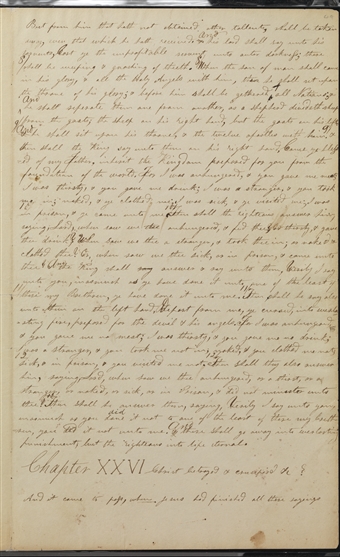 But from him that hath not obtained other talents, shall be taken
away, even that which he hath received. And his lord shall say unto his
servants, Cast ye the unprofitable servant into outer darkness, there
shall be weeping, & gnashing of teeth. When the son of man shall come
in his glory, & all the Holy Angels with him, then he shall sit upon
the throne of his glory; & before him shall be gathered all Nations; &
he shall separate them one from another, as a shepherd divideth sheep
from the goats; the sheep on his right hand, but the goats on his left
he shall sit upon his throne, & the twelve apostles with him; &
then shall the King say unto them on his right hand, Come ye bless
ed of my father, inherit the Kingdom prepared for you from the
foundation of the world; for I was an hungered, & you gave me meat
I was thirsty, & you gave me drink; I was a stranger, & you took
me in; naked, & ye clothed me; I was sick, & ye visited me; I was
in prison, & ye came unto me; then shall the righteous answer him
saying, Lord, when saw we thee an hungered, & fed thee; or thirsty, & gave
thee drink; When saw we thee a stranger, & took thee in; or naked &
clothed thee; Or, when saw we thee sick, or in prison, & came unto
thee; & the King shall answer & say unto them, Verily I say
unto you, inasmuch as ye have done it unto one of the least of
these my Brethren, ye have done it unto me. Then shall he say also
unto them on the left hand, Depart from me, ye cursed, into everla
sting fire, prepared for the devil & his angels; for I was an hungered
& you gave me not meat; I was thirsty, & you gave me no drink;
I was a stranger, & you took me not in; naked, & you clothed me not;
sick, & in prison, & you visited me not; then shall they also answer
him, saying, Lord, when saw we thee an hungered, or a thirst, or a
stranger, or naked, or sick, or in Prison, & did not minister unto
thee; then shall he answer them, saying, Verily I say unto you,
inasmuch as ye did it not to one of the least of these my breth
ren, you did it not unto me. & these shall go away into everlasting
punishment; but the righteous into life eternal.
Chapter XXVI Christ betrayed & crucified &c
And it came to pass, when Jesus had finished all these sayings